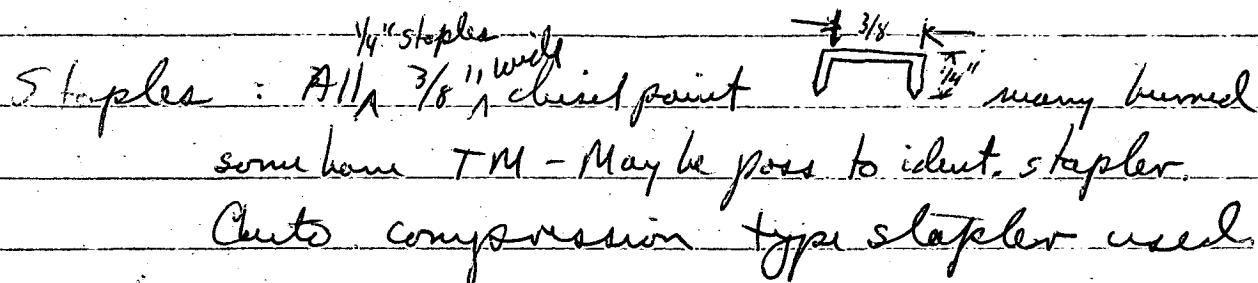 1/4" staples 3/8
Staples : All ^ 3/8" ^ wide chisel point 1/4" many burned
some have TM - May be poss to ident. stapler.
Auto compression type stapler used.